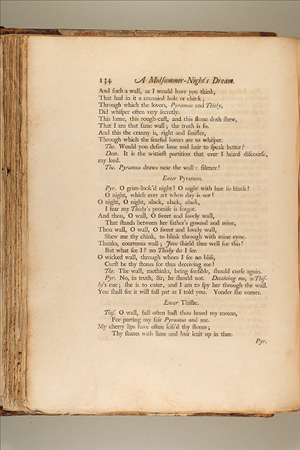 134 A Midsummer-Night's Dream.
And such a wall, as I would have you think,
That had in it a crannied hole or chink;
Through which the lovers, Pyramus and Thisby,
Did whisper often very secretly.
This lome, this rough-cast, and this stone doth shew,
That I am that same wall; the truth is so.
And this the cranny is, right and sinister,
Through which the fearful lovers are to whisper.
The. Would you desire lime and hair to speak better?
Dem. It is the wittiest partition that ever I heard discourse,
my lord.
The. Pyramus draws near the wall: silence!
Enter Pyramus.
Pyr. O grim-look'd night! O night with hue so black!
O night, which ever art when day is not!
O night, O night, alack, alack, alack,
I fear my Thisby's promise is forgot.
And thou, O wall, O sweet and lovely wall,
That stands between her father's ground and mine,
Thou wall, O wall, O sweet and lovely wall,
Shew me thy chink, to blink through with mine eyne.
Thanks, courteous wall; Jove shield thee well for this!
But what see I? no Thisby do I see.
O wicked wall, through whom I see no bliss,
Curst be thy stones for thus deceiving me!
The. The wall, methinks, being sensible, should curse again.
Pyr. No, in truth, Sir, he should not. Deceiving me, is Thisby's
cue; she is to enter, and I am to spy her through the wall.
You shall see it will fall pat as I told you. Yonder she comes.
Enter Thisbe.
Thisb. O wall, full often hast thou heard my moans,
For parting my fair Pyramus and me.
My cherry lips have often kiss'd thy stones;
Thy stones with lime and hair knit up in thee.
Pyr.